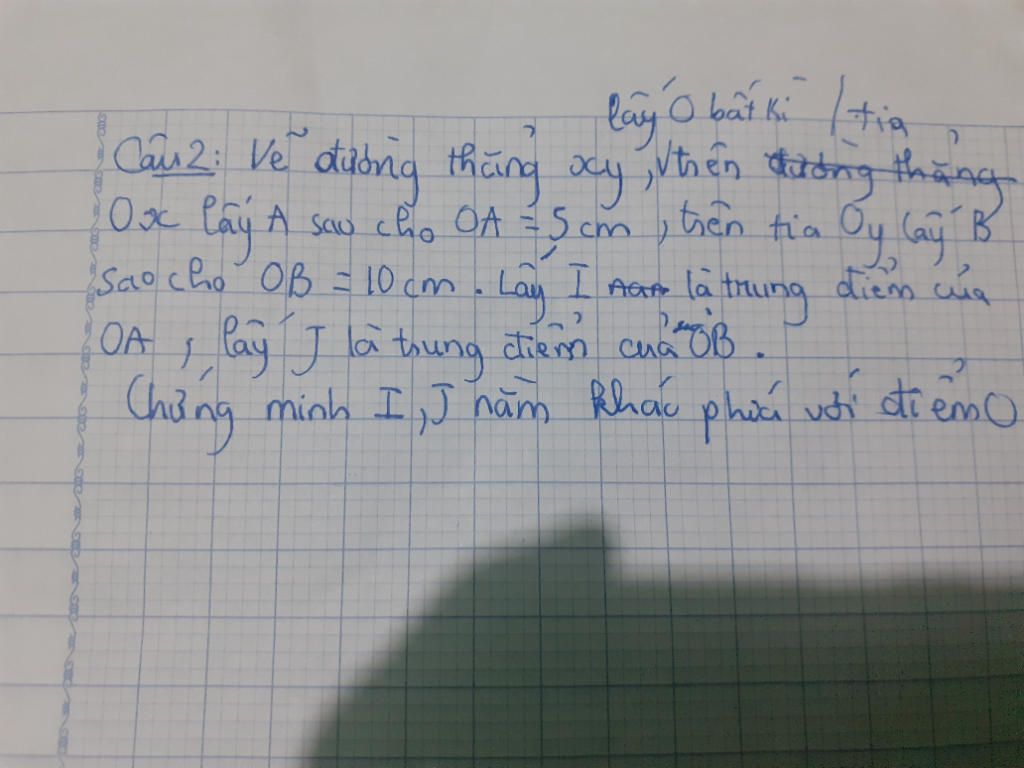 lấy O bất kì / tia
Câu 2: Vẽ đường thẳng xy, trên đường thẳng
Ox lấy A sao cho OA = 5 cm, trên tia Oy lấy B
sao cho OB = 10 cm. Lấy I là trung điểm của
OA, lấy J là trung điểm của OB.
Chứng minh I, J nằm khác phía với điểm O